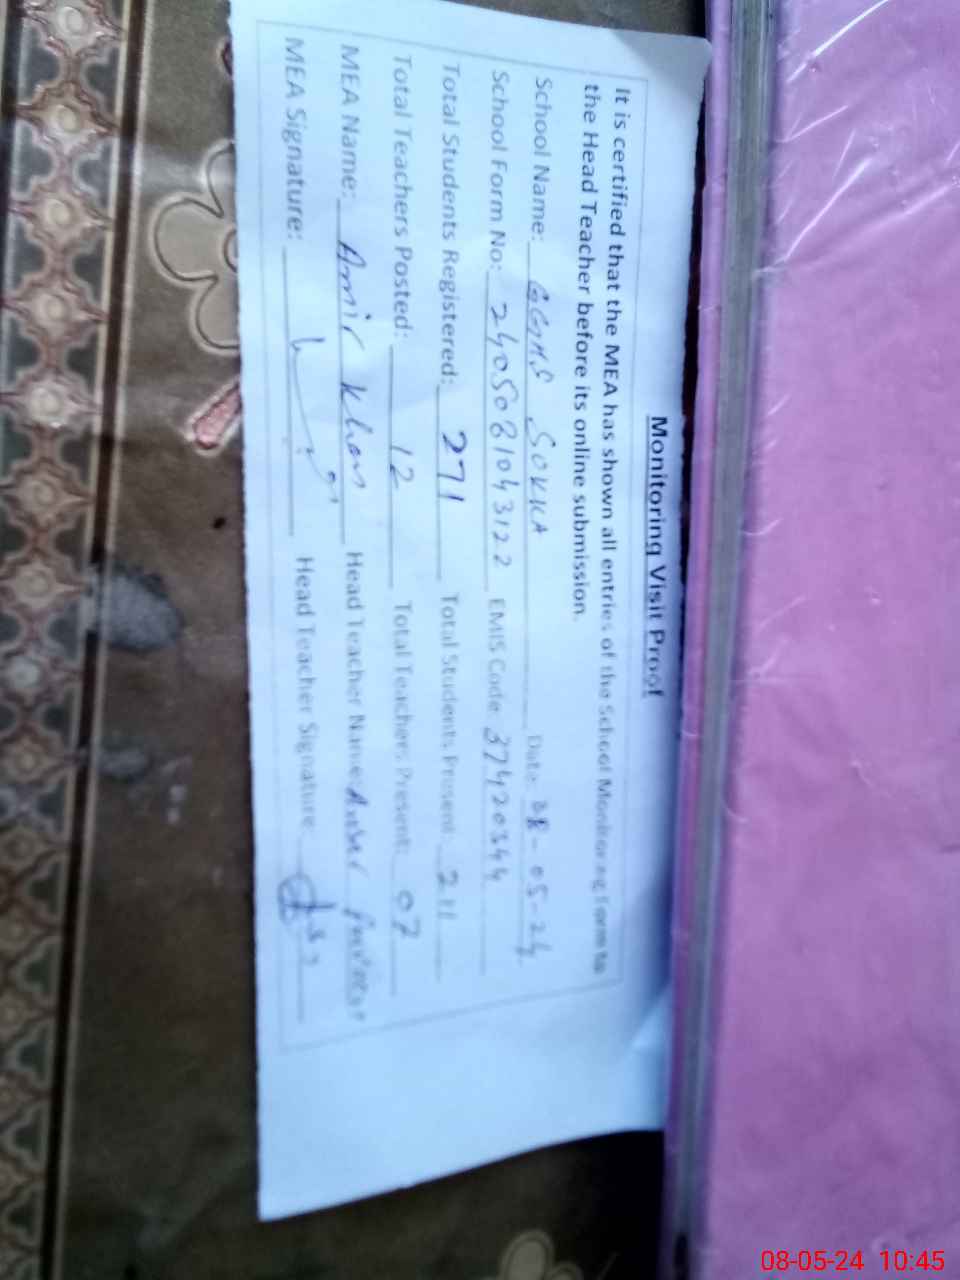 Monitoring Visit Proof
It is certified that the MEA has shown all entries of the School Monitoring Form to
the Head Teacher before its online submission.
School Name: GGMS SOKKA Date: 08-05-24
School Form No: 2405081043122 EMIS Code: 37420344
Total Students Registered: 271 Total Students Present: 211
Total Teachers Posted: 12 Total Teachers Present: 07
MEA Name: Amir Khan Head Teacher Name:
MEA Signature: Head Teacher Signature:
08-05-24 10:45